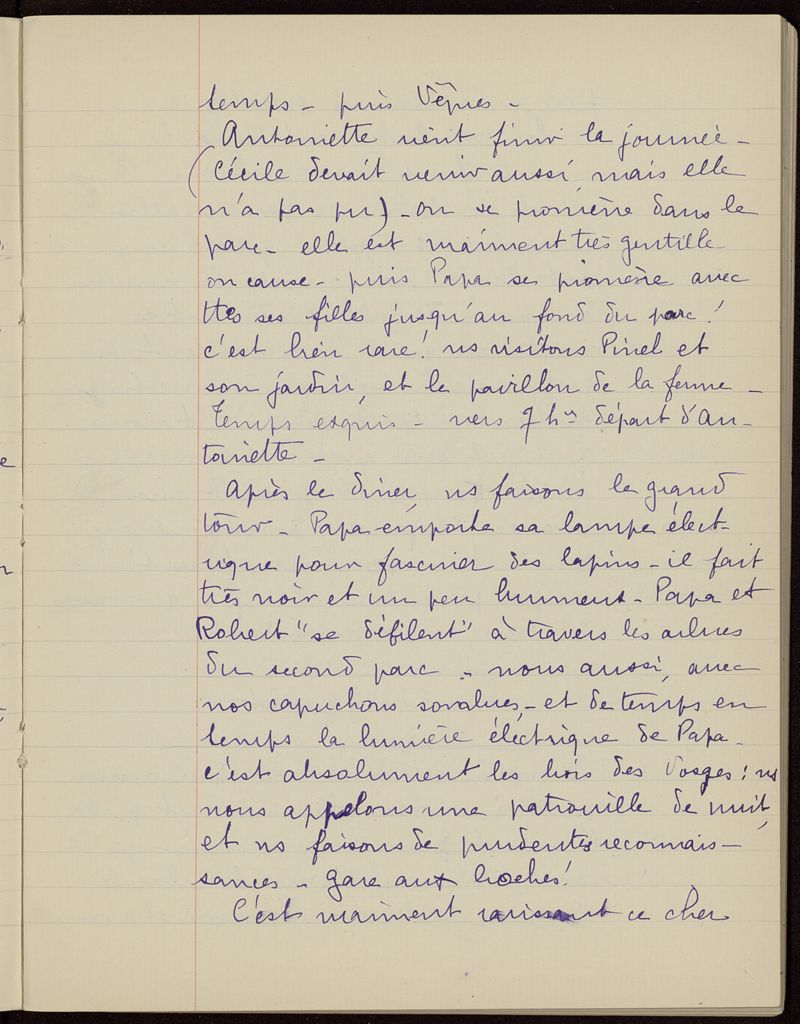 temps – puis Vêpres –
Antoinette vient finir la journée –
(Cécile devait venir aussi, mais elle
n'a pas pu) – on se promène dans le
parc – elle est vraiment très gentille –
on cause – puis Papa se promène avec
ttes ses filles jusqu'au fond du parc!
c'est bien rare! ns visitons Pinel et
son jardin, et le pavillon de la ferme –
Temps exquis – vers 7 hrs départ d'An-
toinette –
Après le dîner, ns faisons le grand
tour – Papa emporte sa lampe élect-
rique pour fasciner des lapins – il fait
très noir et un peu brument – Papa et
Robert "se défilent" à travers les arbres
du second parc – nous aussi, avec
nos capuchons sombres, – et de temps en
temps la lumière éléctrique de Papa –
c'est absolument les bois des Vosges: ns
nous appelons une patrouille de nuit,
et ns faisons de prudentes reconnais–
sances – gare aux boches!
C'est vraiment ravissant ce cher